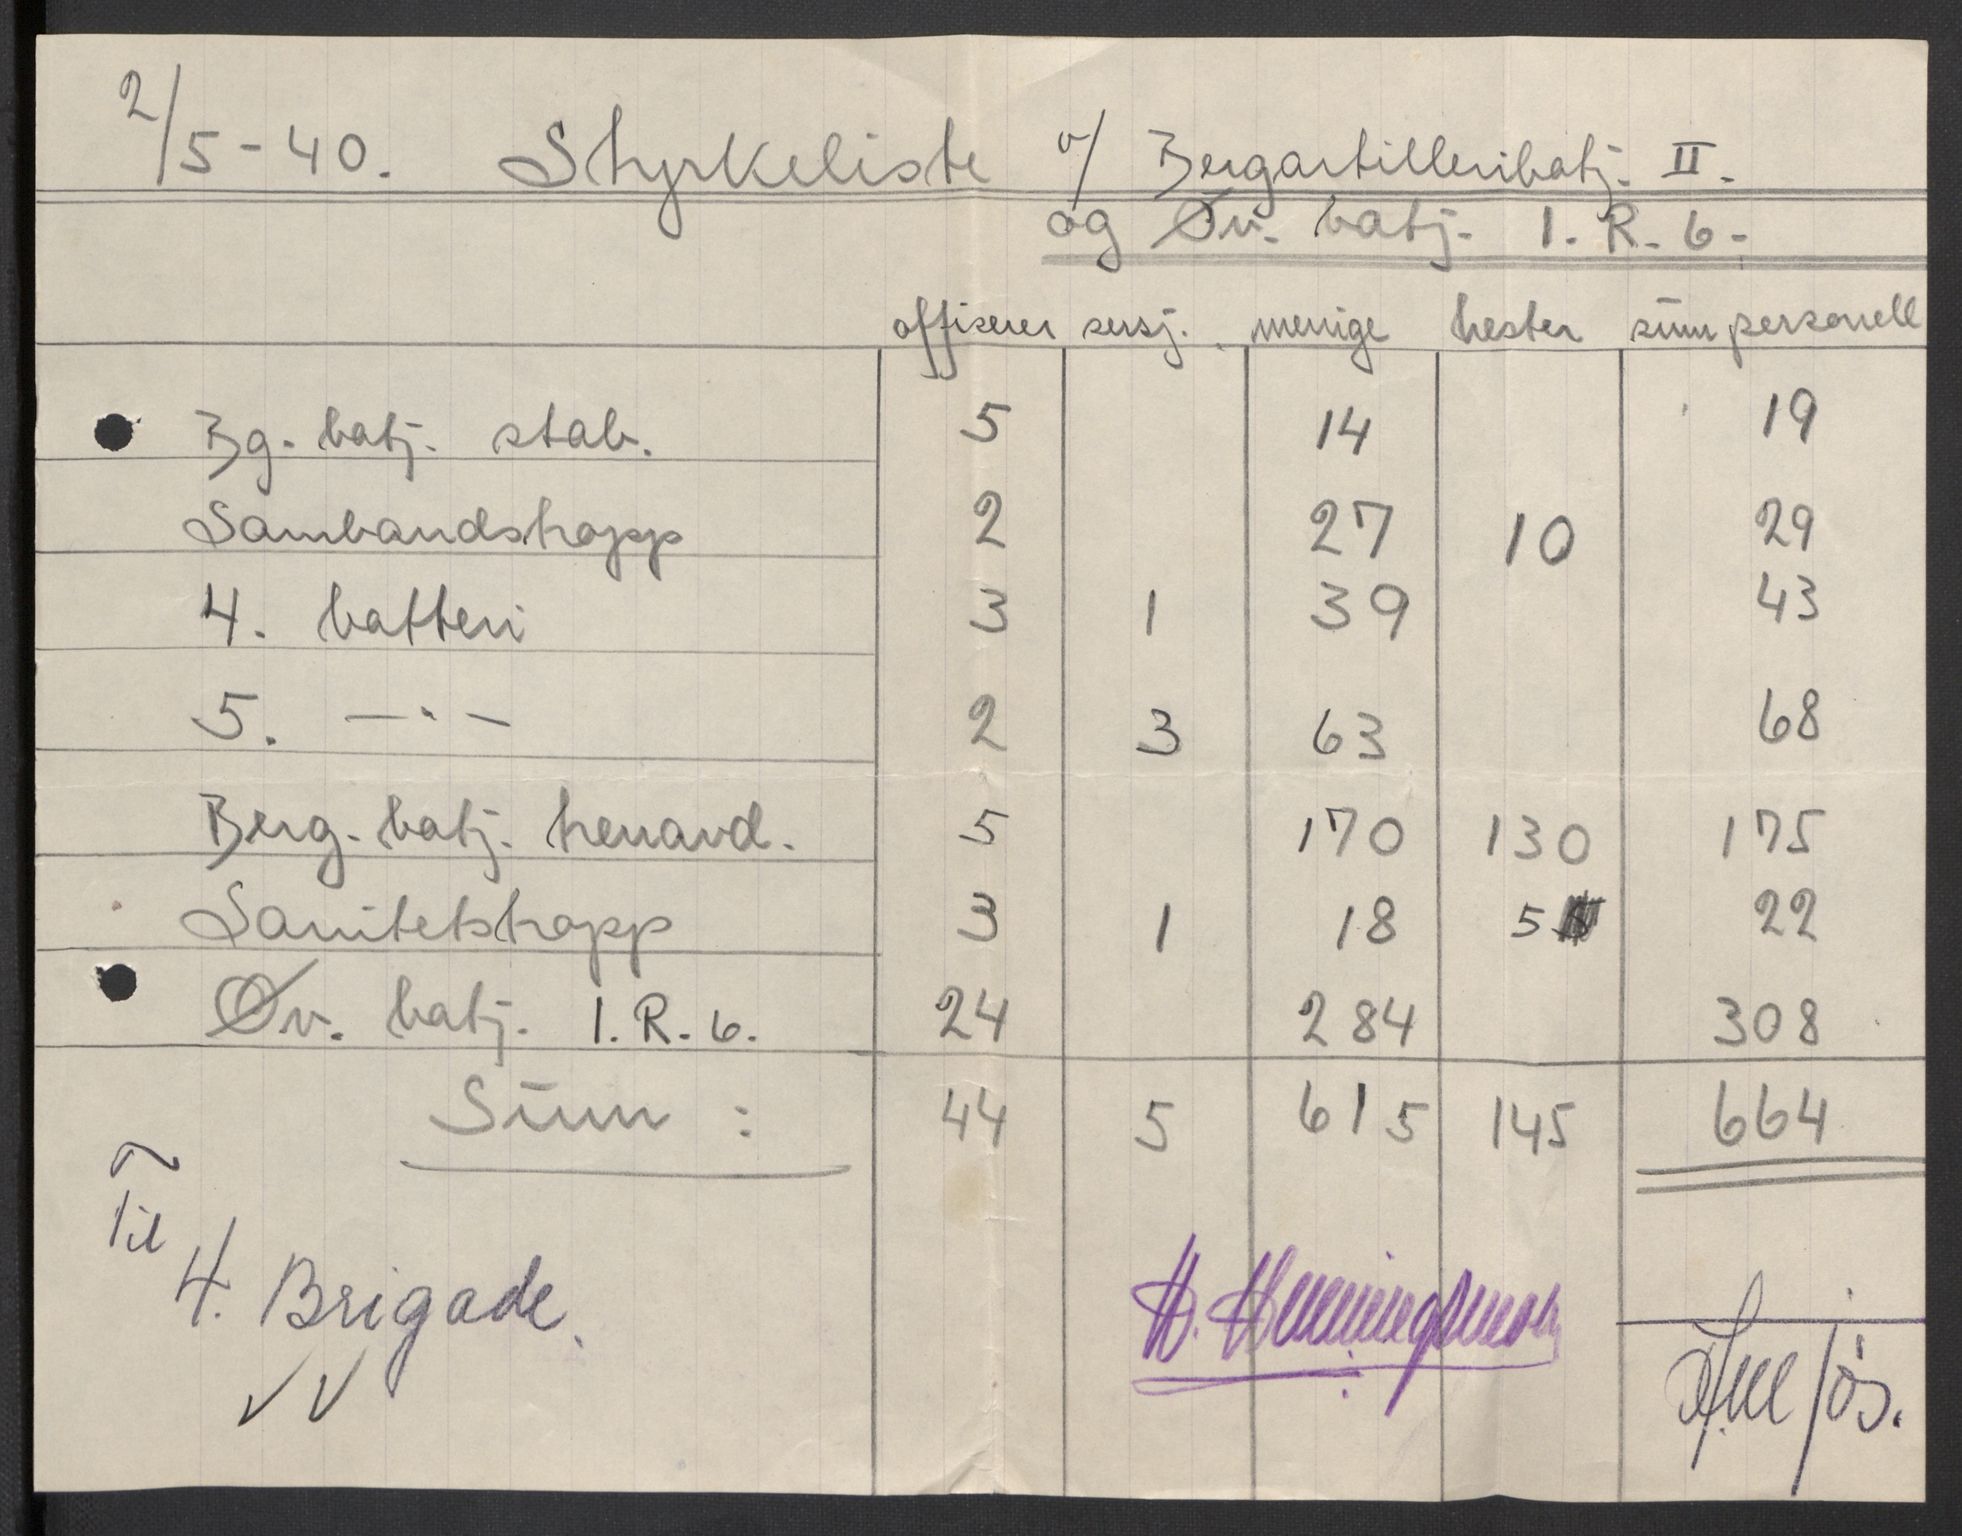 2/5-40. Styrkeliste v/ Bergartilleribatj. II.
og Øv. batj. I.R.6.
offiserer sersj. menige hester sum personell
Bg. batj. stab. 5 14 19
Sambandstropp 2 27 10 29
4. batteri 3 1 39 43
5. —·— 2 3 63 68
Berg. batj. trenavd. 5 170 130 175
Sanitetstropp 3 1 18 5 22
Øv. batj. I.R.6. 24 284 308
Sum : 44 5 615 145 664
Til
4. Brigade.